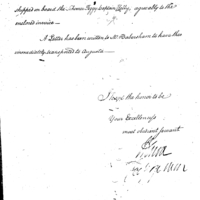 shipped on board the Thomas Peggy Captain agreeably to the
enclosed invoice
A Letter has been written to Mr to have them
immediately transported to Augusta
I have the honor to be
Your Excellency's
most obedient servant